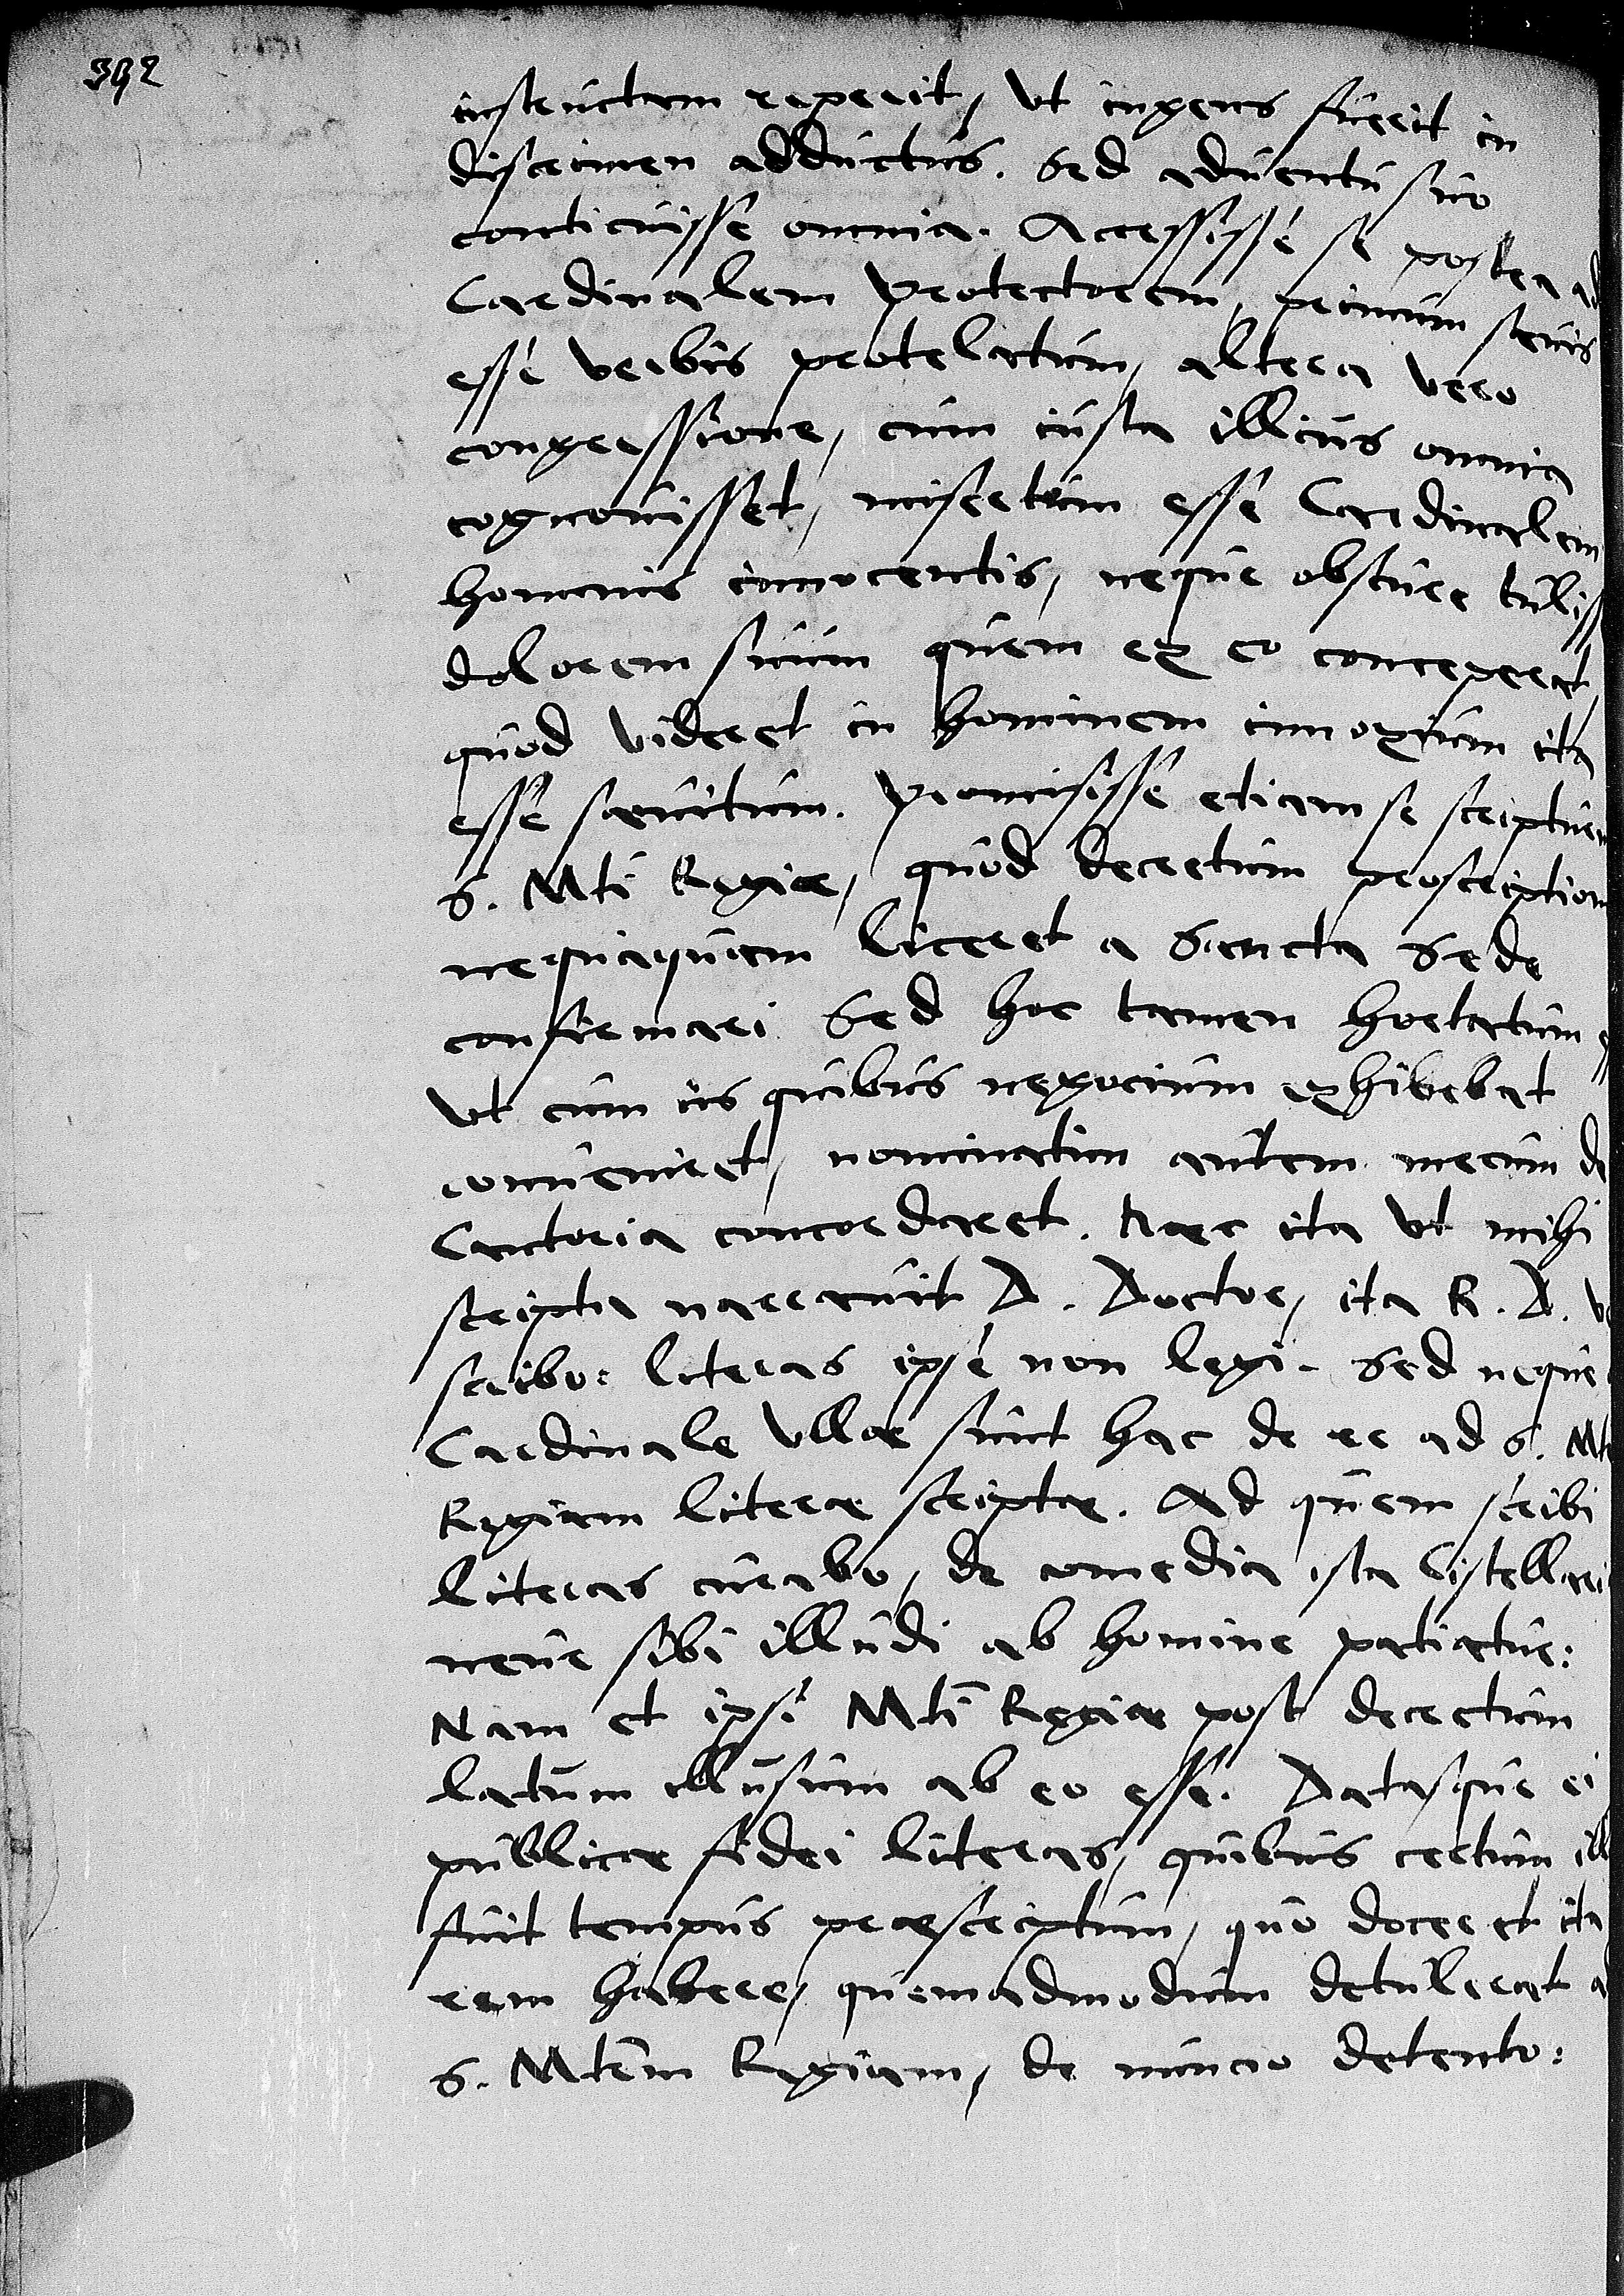 392
instructam reperit, vt ingens fuerit in
discrimen adductus. Sed aduentu suo
conticuisse omnia. Accessisse se postea ad
Cardinalem Protectorem, primum sæuis
esse verbis protelatum, altera vero
congressione, cum iusta illius omnia
cognouisset, misertum esse Cardinalem
hominis innocentis, neque obscure tuliss
dolorem suum quem ex eo conceperat,
quod videret in hominem innoxium ita
esse sæuitum. Promisisse etiam se scriptur
S. Mti Regiæ, quod decretum proscription
nequaquam liceret a Sancta Sede
confirmari. Sed hoc tamen hortatum
vt cum iis quibus negocium exhibebat
conueniret, nominatim autem mecum de
Cantoria concordaret. Hæc ita vt mihi
scripta narrauit D. Doctor, ita R. D. v
scribo: literas ipse non legi. Sed neque
Cardinale vllæ sunt hac de re ad S. Mt
Regiam literæ scriptæ. Ad quem scribi
literas curabo, de comedia ista Cistellari
neue sibi illudi ab homine patiatur:
Nam et ipsi Mti Regiæ post decretum
latum illusum ab eo esse. Datasque ei
publicæ fidei literas, quibus certum ill
fuit tempus præscriptum, quo doceret ita
rem habere, quemadmodum detulerat a
S. Mtem Regiam, de nuncio detento: